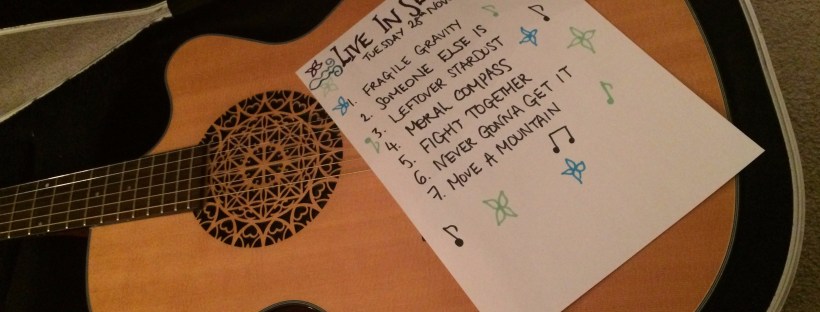 LIVE IN
TUESDAY 28TH NOV
1. FRAGILE GRAVITY
2. SOMEONE ELSE IS
3. LEFTOVER STARDUST
4. MORAL COMPASS
5. FIGHT TOGETHER
6. NEVER GONNA GET IT
7. MOVE A MOUNTAIN